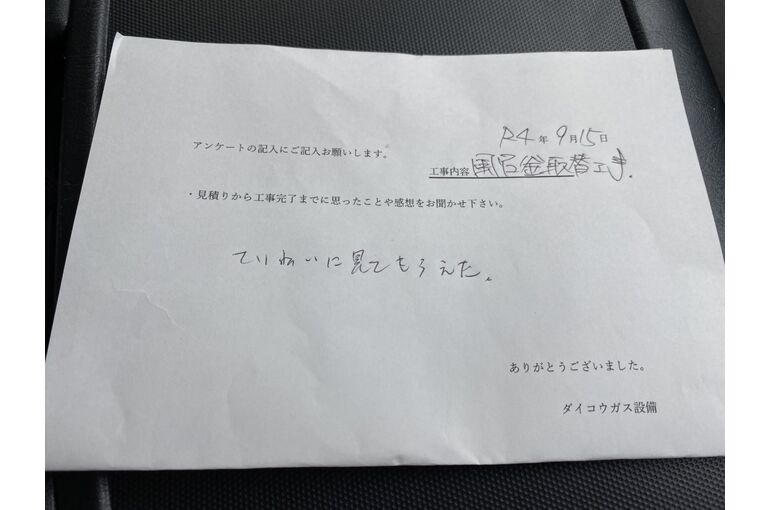 R4年9月15日
アンケートの記入にご記入お願いします。
工事内容 風呂釜取替工事.
・見積りから工事完了までに思ったことや感想をお聞かせ下さい。
ていねいに見てもらえた。
ありがとうございました。
ダイコウガス設備